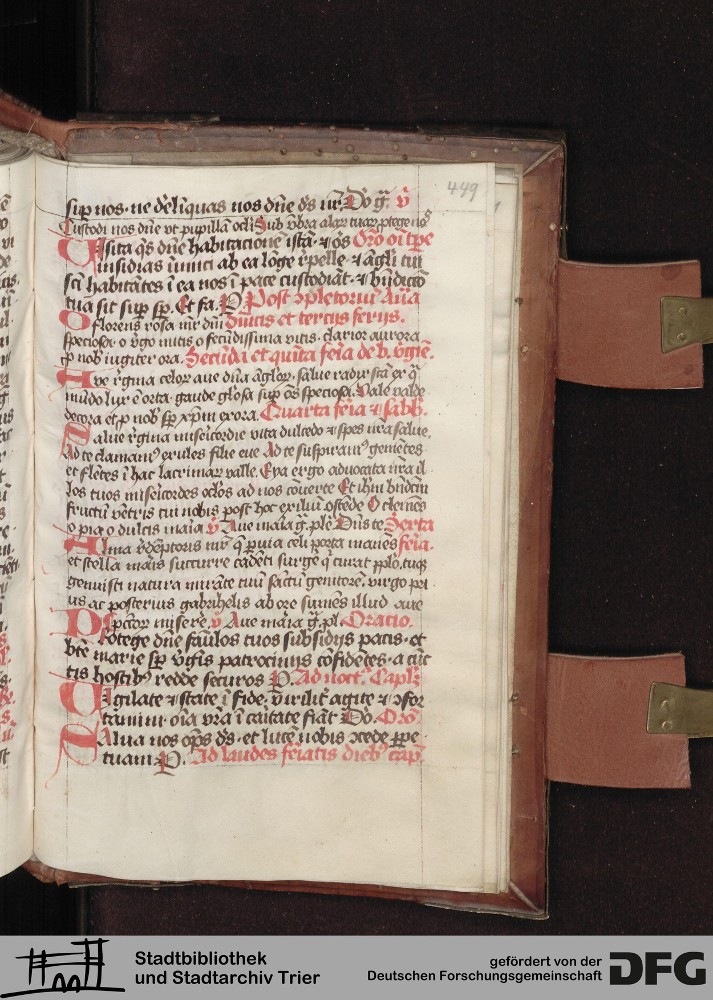 449
sup nos · ne d'elinquas nos dn̄e ds̄ nr̄. Do g̃. v̄
Custodi nos dn̄e vt pupillā ocli Sub vmbra alar tuar ptege nos
Visita qs dn̄e habitacionē istā · ⁊ oēs Oro oī tpe
insidias inimici ab ea lōge repelle · ⁊ āgli tui
scī habitātes ī ea nos ī pace custodiāt · ⁊ bn̄dictō
tua sit sup sp̄. Et fa. P. Post ↄpletoriū Aña
O florens rosa mr̄ dn̄i Diuitis et tercijs ferijs.
speciosa · o v̄go mitis o fecūdissima vitis · clarior aurora
ꝓ nob iugiter ora. Secūda et quīta fe͛ia de b. v̄gīe.
Ave r̄gina celor aue dn̄a āglor · salue radix scā ex q̄
mūdo lux ē orta · gaude gl'osa sup oēs speciosa. Vale valde
decora et ꝓ nob sp̄ xp̄m exora. Quarta fe͛ia ⁊ sabb.
Salue r̄gina misericordie vita dulcedo ⁊ spes nr̄a salue.
Ad te clamamꝰ exules filie eue Ad te suspiramꝰ gemētes
et flētes ī hac lacrimar valle. Eya ergo aduocata nr̄a il
los tuos misericordes oclos ad nos cōuerte Et ihm̄ bn̄dcm̄
fructū vētris tui nobis post hoc exiliū ostēde O clemēs
o pia o dulcis maīa v̄ Aue maīa g̃. ple. Dn̄s te Sexta
Alma redēptoris mr̄ q̄ ꝑuia celi porta manēs fe͛ia.
et stella maris succurre cadēti surge͛ q̄ curat pplo. tu q̄
genuisti natura mirāte tuū sāctū genitorē. virgo pri
us ac posterius gabrihelis ab ore sumēs illud aue
Pctor misere. v̄ Aue maīa g̃. pl. Oratio.
Protege dn̄e fāulos tuos subsidijs pacis · et
btē marie sp̄ v̄gīs patrocinijs cōfidētes · a cūc
tis hostibꝰ redde securos P. Ad noct. Caplm
Vigilate ⁊ state ī fide. viriliť agite ⁊ ↄfor
tamini · oīa vr̄a ī caritate fiāt Do. Oro
Salua nos op̄s ds̄ · et lucē nobis ↄcede ppe
tuam P. Ad laudes fe͛iatis diebꝰ cap.
Stadtbibliothek
und Stadtarchiv Trier
gefördert von der
Deutschen Forschungsgemeinschaft
DFG